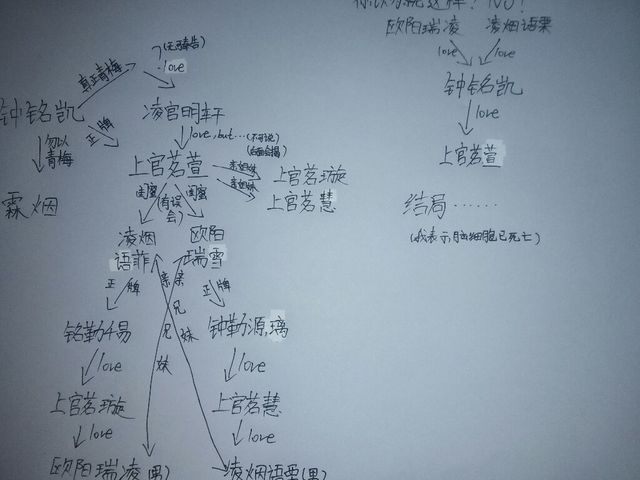 你以为就这样？NO！
欧阳瑞凌 凌烟语栗
love love
钟铭凯
love
上官茗萱
结局……
(我表示脑细胞已死亡)
?(无可奉告)
love
真正青梅
钟铭凯
凌官明轩
正牌
勿以
青梅
love, but…(不可说)
(后面会揭)
霖烟
上官茗萱
亲姐妹
上官茗璇
亲姐妹
上官茗慧
闺蜜 闺蜜
(有误会)
凌烟
语菲
欧阳
瑞雪
正牌 亲兄妹 亲兄妹 正牌
铭勒千易
钟勒源璃
love love
上官茗璇 上官茗慧
love love
欧阳瑞凌(男) 凌烟语栗(男)